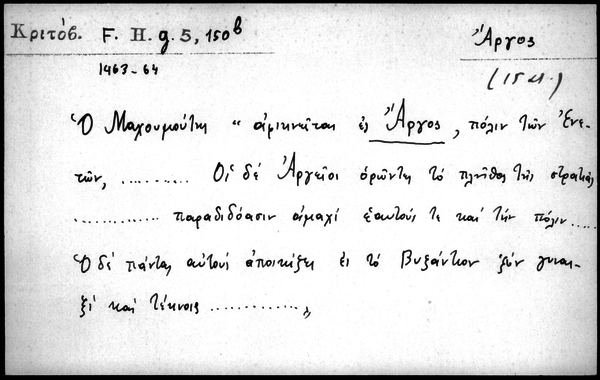 Κριτόβ. F. H. g. 5, 150β
Ἄργος
1463-64
(15 αι.)
Ὁ Μαχουμούτης " ἀφικνεῖται ἐς Ἄργος, πόλιν τῶν Ἐνε-
τῶν, .......... Οἱ δέ Ἀργεῖοι ὁρῶντες τό πλῆθος τῆς στρατιᾶς
............ παραδιδόασιν ἀμαχί ἑαυτούς τε καί τήν πόλιν.....
Ὁ δέ πάντας αὐτούς ἀποικίζει ἐς τό Βυζάντιον ξύν γυναι-
ξί καί τέκνοις ............ "